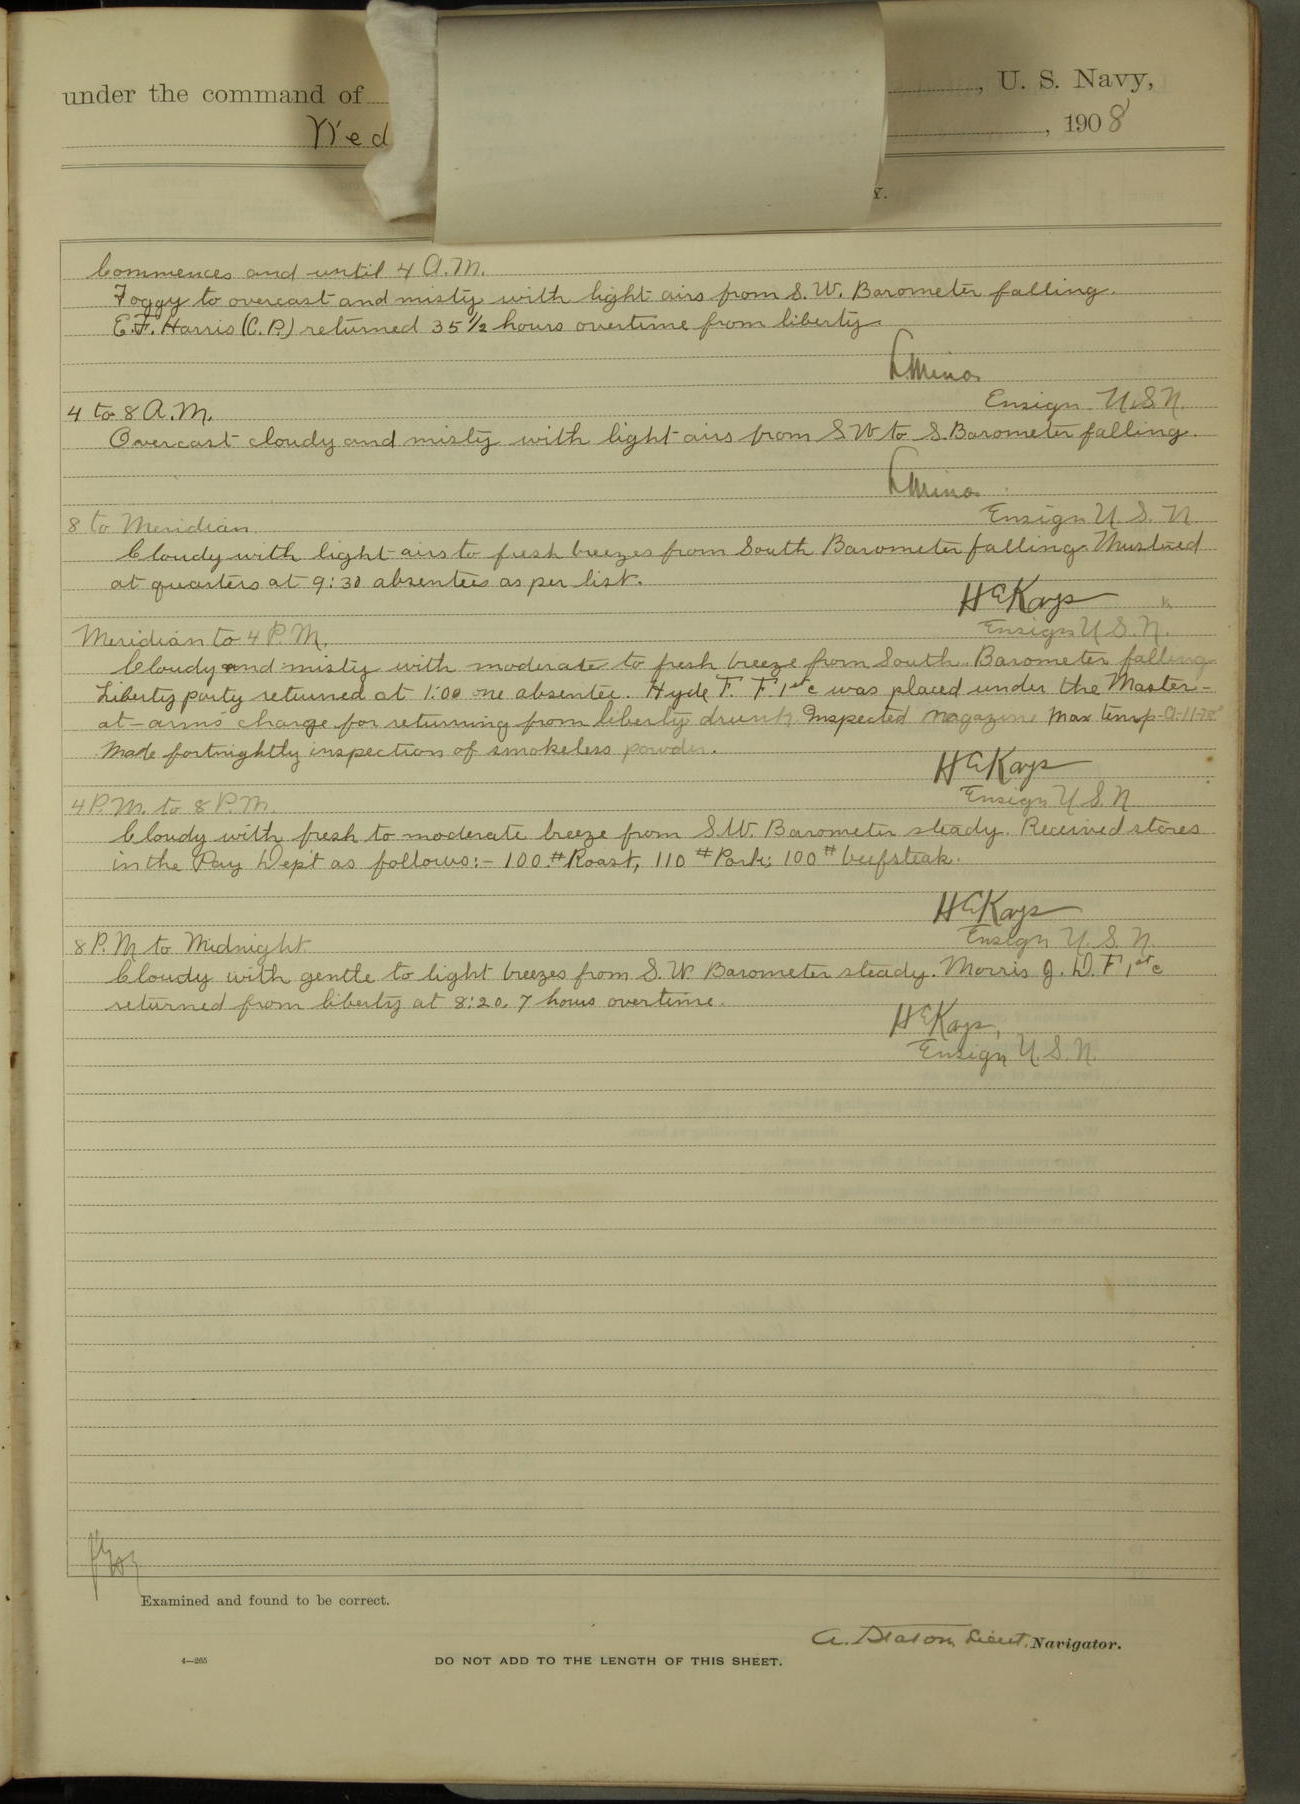 under the command of , U. S. Navy,
Wed , 1908
Y.
Commences and until 4 A.M.
Foggy to overcast and misty with light airs from S.W. Barometer falling.
E.F. Harris (C.P.) returned 35 1/2 hours overtime from liberty
L Minor
Ensign U.S.N.
4 to 8 A.M.
Overcast cloudy and misty with light airs from S W to S. Barometer falling.
L Minor
Ensign U. S. N
8 to Meridian
Cloudy with light airs to fresh breezes from South Barometer falling. Mustered
at quarters at 9:30 absentees as per list.
H E Kays
Ensign U S. N.
Meridian to 4 P.M.
Cloudy and misty with moderate to fresh breeze from South. Barometer falling
Liberty party returned at 1:00 one absentee. Hyde F. F 1st c was placed under the Master-
at-arms charge for returning from liberty drunk Inspected magazine Max temp-A-11-78°
Made fortnightly inspection of smokeless powder.
H E Kays
Ensign U S. N
4 P.M. to 8 P.M.
Cloudy with fresh to moderate breeze from S.W. Barometer steady. Received stores
in the Pay Dep't as follows:- 100.# Roast, 110 # Pork; 100 # beefsteak.
H E Kays
Ensign U. S. N.
8 P.M to Midnight.
Cloudy with gentle to light breezes from S.W Barometer steady. Morris J. D. F 1st c
returned from liberty at 8:20. 7 hours overtime.
H E Kays,
Ensign U. S. N.
Examined and found to be correct.
A. Staton, Lieut, Navigator.
4—265
DO NOT ADD TO THE LENGTH OF THIS SHEET.